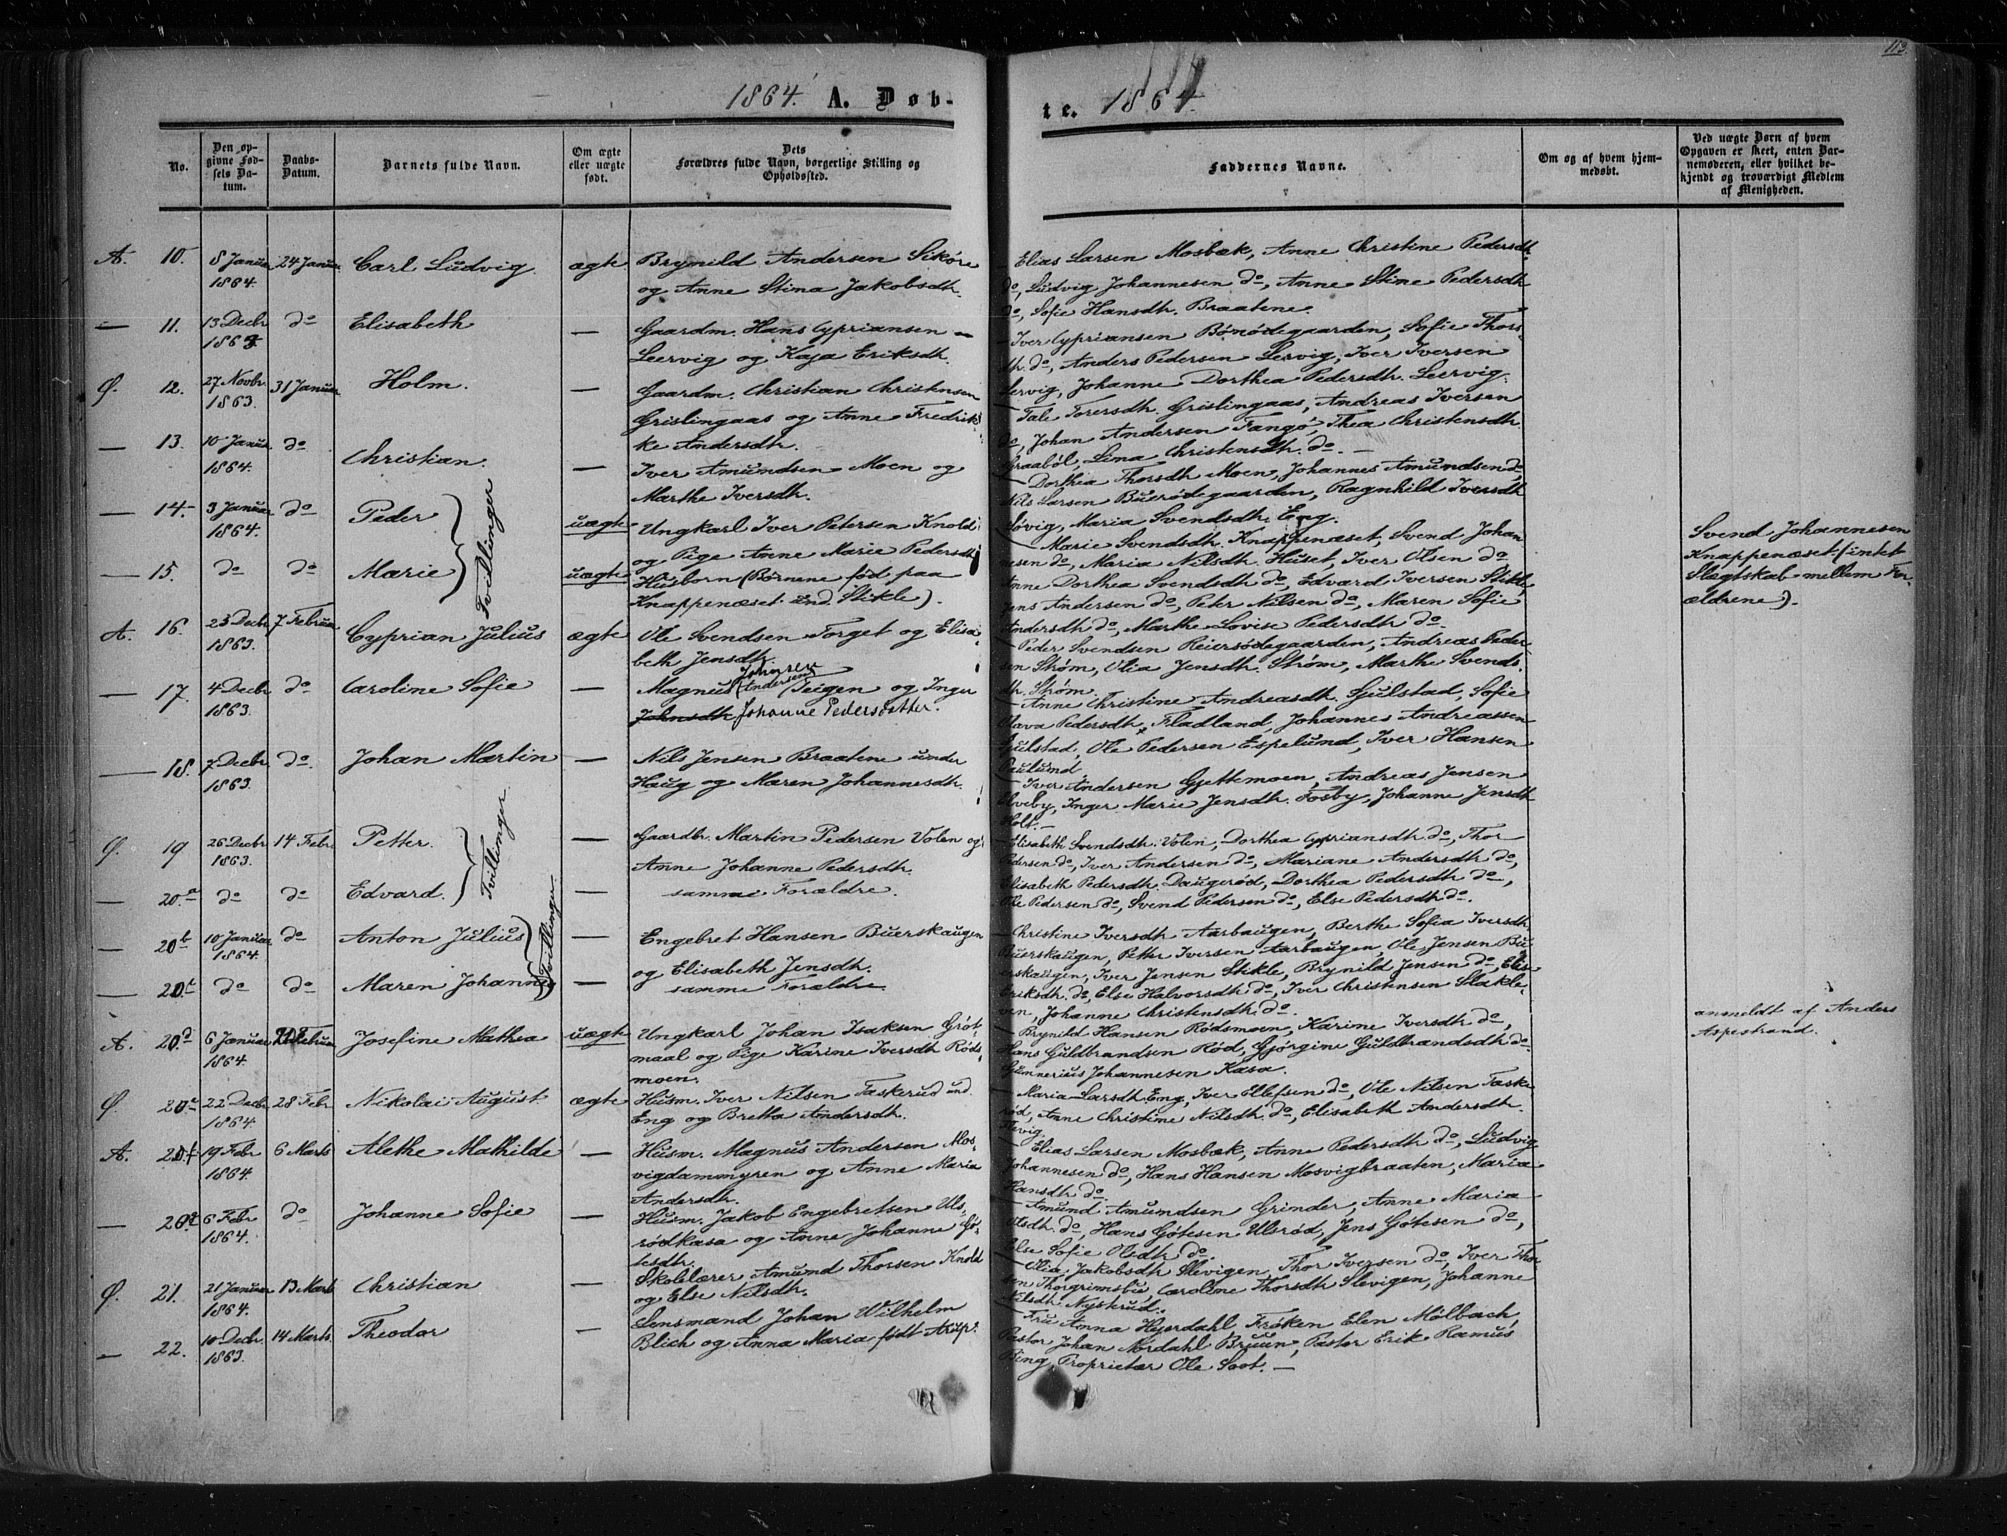 1864. A. Døb-
te. 1864
113.
No.
Den op-
givne Fød-
sels Da-
tum.
Daabs-
Datum.
Barnets fulde Navn.
Om ægte
eller uægte
født.
Dets
Forældres fulde Navn, borgerlige Stilling og
Opholdssted.
Faddernes Navne.
Om og af hvem hjem-
medøbt.
Ved uægte Børn af hvem
Opgaven er skeet, enten Bar-
nemoderen, eller hvilket be-
kjendt og troværdigt Medlem
af Menigheden.
A. 10. 8 Januar 1864. 24 Januar Carl Ludvig ægte
Brynild Andersen Sikøre
og Anne Stina Jakobsdtr.
Elias Larsen Mosbæk, Anne Christine Pedersdtr
do, Ludvig Johannesen do, Anne Stine Pedersdtr
do, Sofie Hansdtr. Braatene.
— 11. 13 Decbr 1863 do Elisabeth —
Gaardm. Hans Cypriansen
Leervig og Kaja Eriksdtr.
Iver Cypriansen Bönödegaarden, Sofie Thors-
dtr. do, Anders Pedersen Lervig, Iver Iversen
Lervig, Johanne Dorthea Pedersdtr. Leervig.
Ø. 12. 27 Novbr. 1863. 31 Januar Holm. —
Gaardm. Christian Christensen
Grislingaas og Anne Fredrik-
ke Andersdtr.
Tale Torersdtr. Grislingaas, Andreas Iversen
do, Johan Andersen Tangö, Thea Christensdtr
Graaböl, Lina Christensdtr. do. —
— 13. 10 Januar 1864. do Christian. —
Iver Amundsen Moen og
Marthe Iversdtr.
Dorthea Thorsdtr Moen, Johannes Amundsen do
Nils Larsen Buerödegaarden, Ragnhild Iversdtr
Løvig, Maria Svendsdtr. Eng.
— 14. 3 Januar 1864. do Peder uægte
Tvillinger
Ungkarl Iver Petersen Knold
og Pige Anne Marie Pedersdtr
— 15. do do Marie uægte
Husborn (Børnene fød. paa
Knappenæset und. Stikle).
Marie Svendsdtr. Knappenæset, Svend Johan
nesen do, Maria Nilsdtr. Huset, Iver Olsen do
Anne Dorthea Svendsdtr do, Edvard Iversen Stikle,
Jens Andersen do, Peter Nilsen do, Maren Sofie
Andersdtr do, Marthe Lovise Pedersdtr do.
Svend Johannesen
Knappenæset (intet
Slægtskab mellem For-
ældrene).
A. 16. 23 Decbr. 1863. 7 Februar Cyprian Julius ægte
Ole Svendsen Torget og Elisa
beth Jensdtr.
Peder Svendsen Reiersödegaarden, Andreas Peder
sen Strøm, Olia Jensdtr. Strøm, Marthe Svends-
dtr. Strøm.
— 17. 4 Decbr 1863. do Caroline Sofie —
Johnsen
Magnus (Andersen) Teigen og Inger
Johnsdtr Johanne Pedersdatter.
Anne Christine Andreasdtr. Gjulstad, Sofie
Olava Pedersdtr. Fladland, Johannes Andreassen
Gjulstad, Ole Pedersen Espelund, Iver Hansen
Paulund.
— 18. 7 Decbr 1863. do. Johan Martin —
Nils Jensen Braatene under
Haug og Maren Johannesdtr.
Iver Andersen Gjettemoen, Andreas Jensen
Elveby, Inger Marie Jensdtr. Fosby, Johanne Jensdtr
Holt. —
Ø. 19 26 Decbr 1863. 14 Febr. Petter. —
Tvillinger
Gaardbr. Martin Pedersen Volen og
Anne Johanne Pedersdtr.
Elisabeth Svendsdtr. Volen, Dorthea Cypriansdtr do, Thor
Pedersen do, Iver Andersen do, Mariane Andersdtr do,
— 20.a do do Edvard. —
samme Forældre.
Elisabeth Pedersdtr. Daugerød, Dorthea Pedersdtr do,
Ole Pedersen do, Svend Pedersen do, Else Pedersdtr do.
— 20b 10 Januar 1864. do Anton Julius —
Tvillinger
Engebret Hansen Buerskaugen
og Elisabeth Jensdtr.
Christine Iversdtr Aarbaugen, Berthe Sofia Iversdtr.
Buerskaugen, Petter Iversen Aarbaugen, Ole Jensen Bu
— 20.c do do Maren Johanne —
samme Forældre
erskaugen, Iver Jensen Stikle, Brynild Jensen do, Elise
Eriksdtr. do, Else Halvorsdtr do, Iver Christensen Slakle-
ven, Johanne Christensdtr. do.
A. 20.d 6 Januar 1864. Februar Josefine Mathea uægte
Ungkarl Johan Isaksen Gröt-
maal og Pige Karine Iversdtr Röds-
moen.
Brynild Hansen Rödsmoen, Karine Iversdtr do,
Hans Guldbrandsen Röd, Gjörgine Guldbrandsdtr do
Gunnerius Johannesen Kasa.
anmeldt af Anders
Aspestrand.
Ø. 20e 22 Decbr 1864 28 Febr Nikolai August ægte
Husm. Iver Nilsen Taskerud und.
Eng og Britta Andersdtr.
Maria Larsdtr Eng, Iver Ellefsen do, Ole Nilsen Taske
röd, Anne Christine Nilsdtr. do, Elisabeth Andersdtr.
A. 20f 19 Febr 1864. 6 Marts Alethe Mathilde —
Husm. Magnus Andersen Mos-
vigdammyren og Anne Maria
Andersdtr.
Elias Larsen Mosbæk, Anne Pedersdtr do, Ludvig
Johannesen do, Hans Hansen Mosvigbraaten, Maria
Hansdtr do.
— 20g 6 Febr 1864. do Johanne Sofie —
Husm. Jakob Engebretsen Uls-
rödkasa og Anne Johanne Gö-
tesdtr.
Amund Amundsen Grinder, Anne Maria
Olsdtr do, Hans Götesen Ulsröd, Jens Götesen do,
Else Sofie Olsdtr do.
Ø. 21. 21 Januar 1864. 13 Marts Christian —
Skolelærer Amund Thorsen Knold
og Else Nilsdtr.
Olia Jakobsdtr Slevigen, Thor Iversen do, Iver Thor
sen Thorgrimsbu, Caroline Thorsdtr Slevigen, Johanne
Nilsdtr Nyskrud.
— 22. 10 Decbr. 1863. 14 Marts. Theodor —
Lensmand Johan Wilhelm
Blich og Anna Maria født Arup.
Fru Anna Hejerdahl, Fröken Elen Mölbach,
Pastor Johan Nordahl Bruun, Pastor Erik Ramus
Bing, Proprietær Ole Soot. —